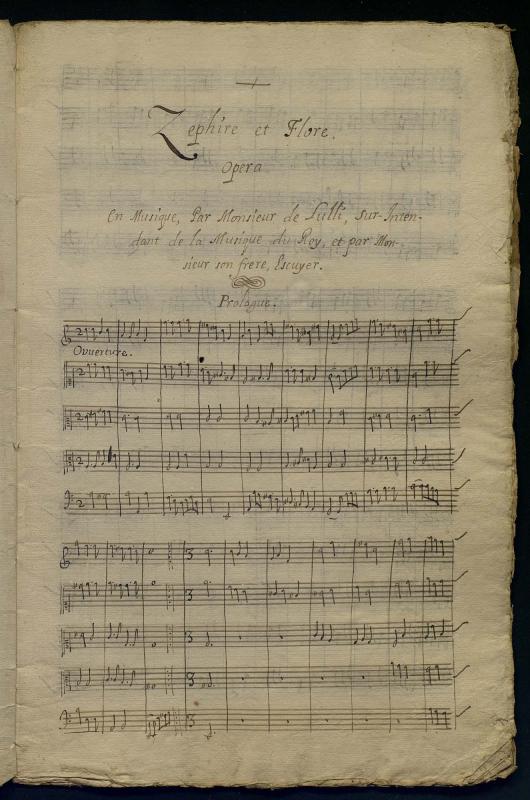 Zephire et Flore.
Opera
En Musique, Par Monsieur de Lulli, Sur-Inten-
dant de la Musique du Roy, et par Mon-
sieur son frere, Escuyer.
Prologue.
Ouverture.
2
2
2
2
2
3
3
3
3
3